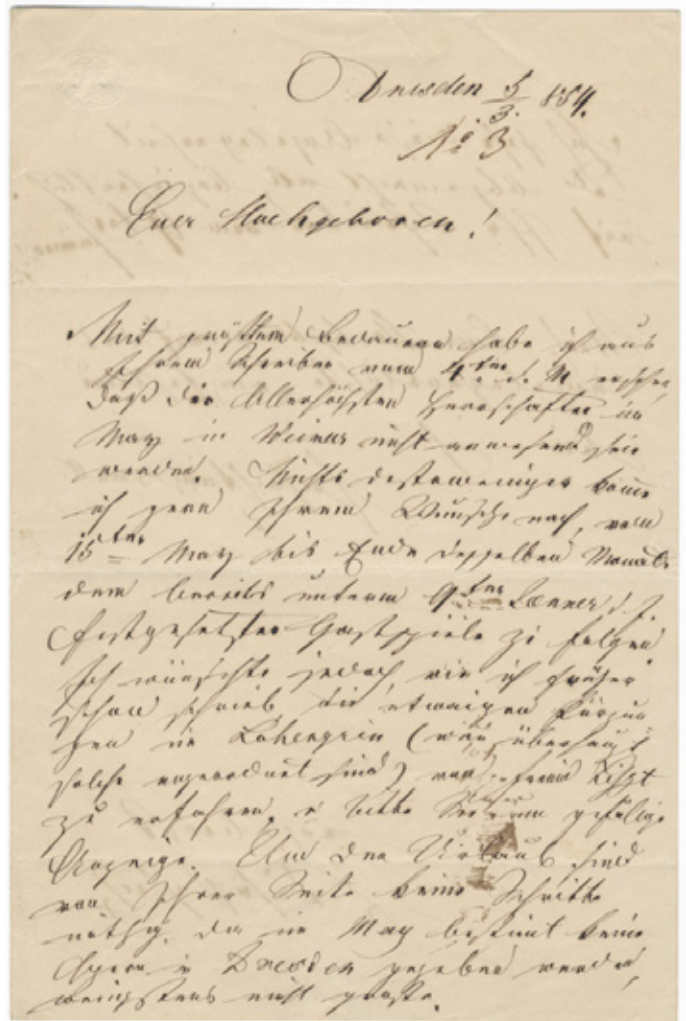 Dresden 5/3. 854.
No 3
Euer Hochgeboren!
Mit größtem Bedauern habe ich aus
Ihrem Schreiben vom 4ten d. M. ersehen,
daß die Allerhöchsten Herrschaften im
May in Weimar nicht anwesend sein
werden. Nichts destoweniger komme
ich gern Ihrem Wunsche nach, vom
15ten May bis Ende desselben Monats
dem bereits unterm 9ten Jänner d. J.
festgesetzten Gastspiele zu folgen
Ich wünschte jedoch, wie ich früher
schon schrieb die etwaigen Kürzun
gen in Lohengrin (wenn überhaupt
solche angeordnet sind) von Liszt
zu erfahren, u bitte gefällige
Anzeige. Um den Urlaub sind
von Ihrer Seite keine Schritte
nöthig, da im May bestimt keine
Opern in Dresden gegeben werden,
wenigstens nicht große.